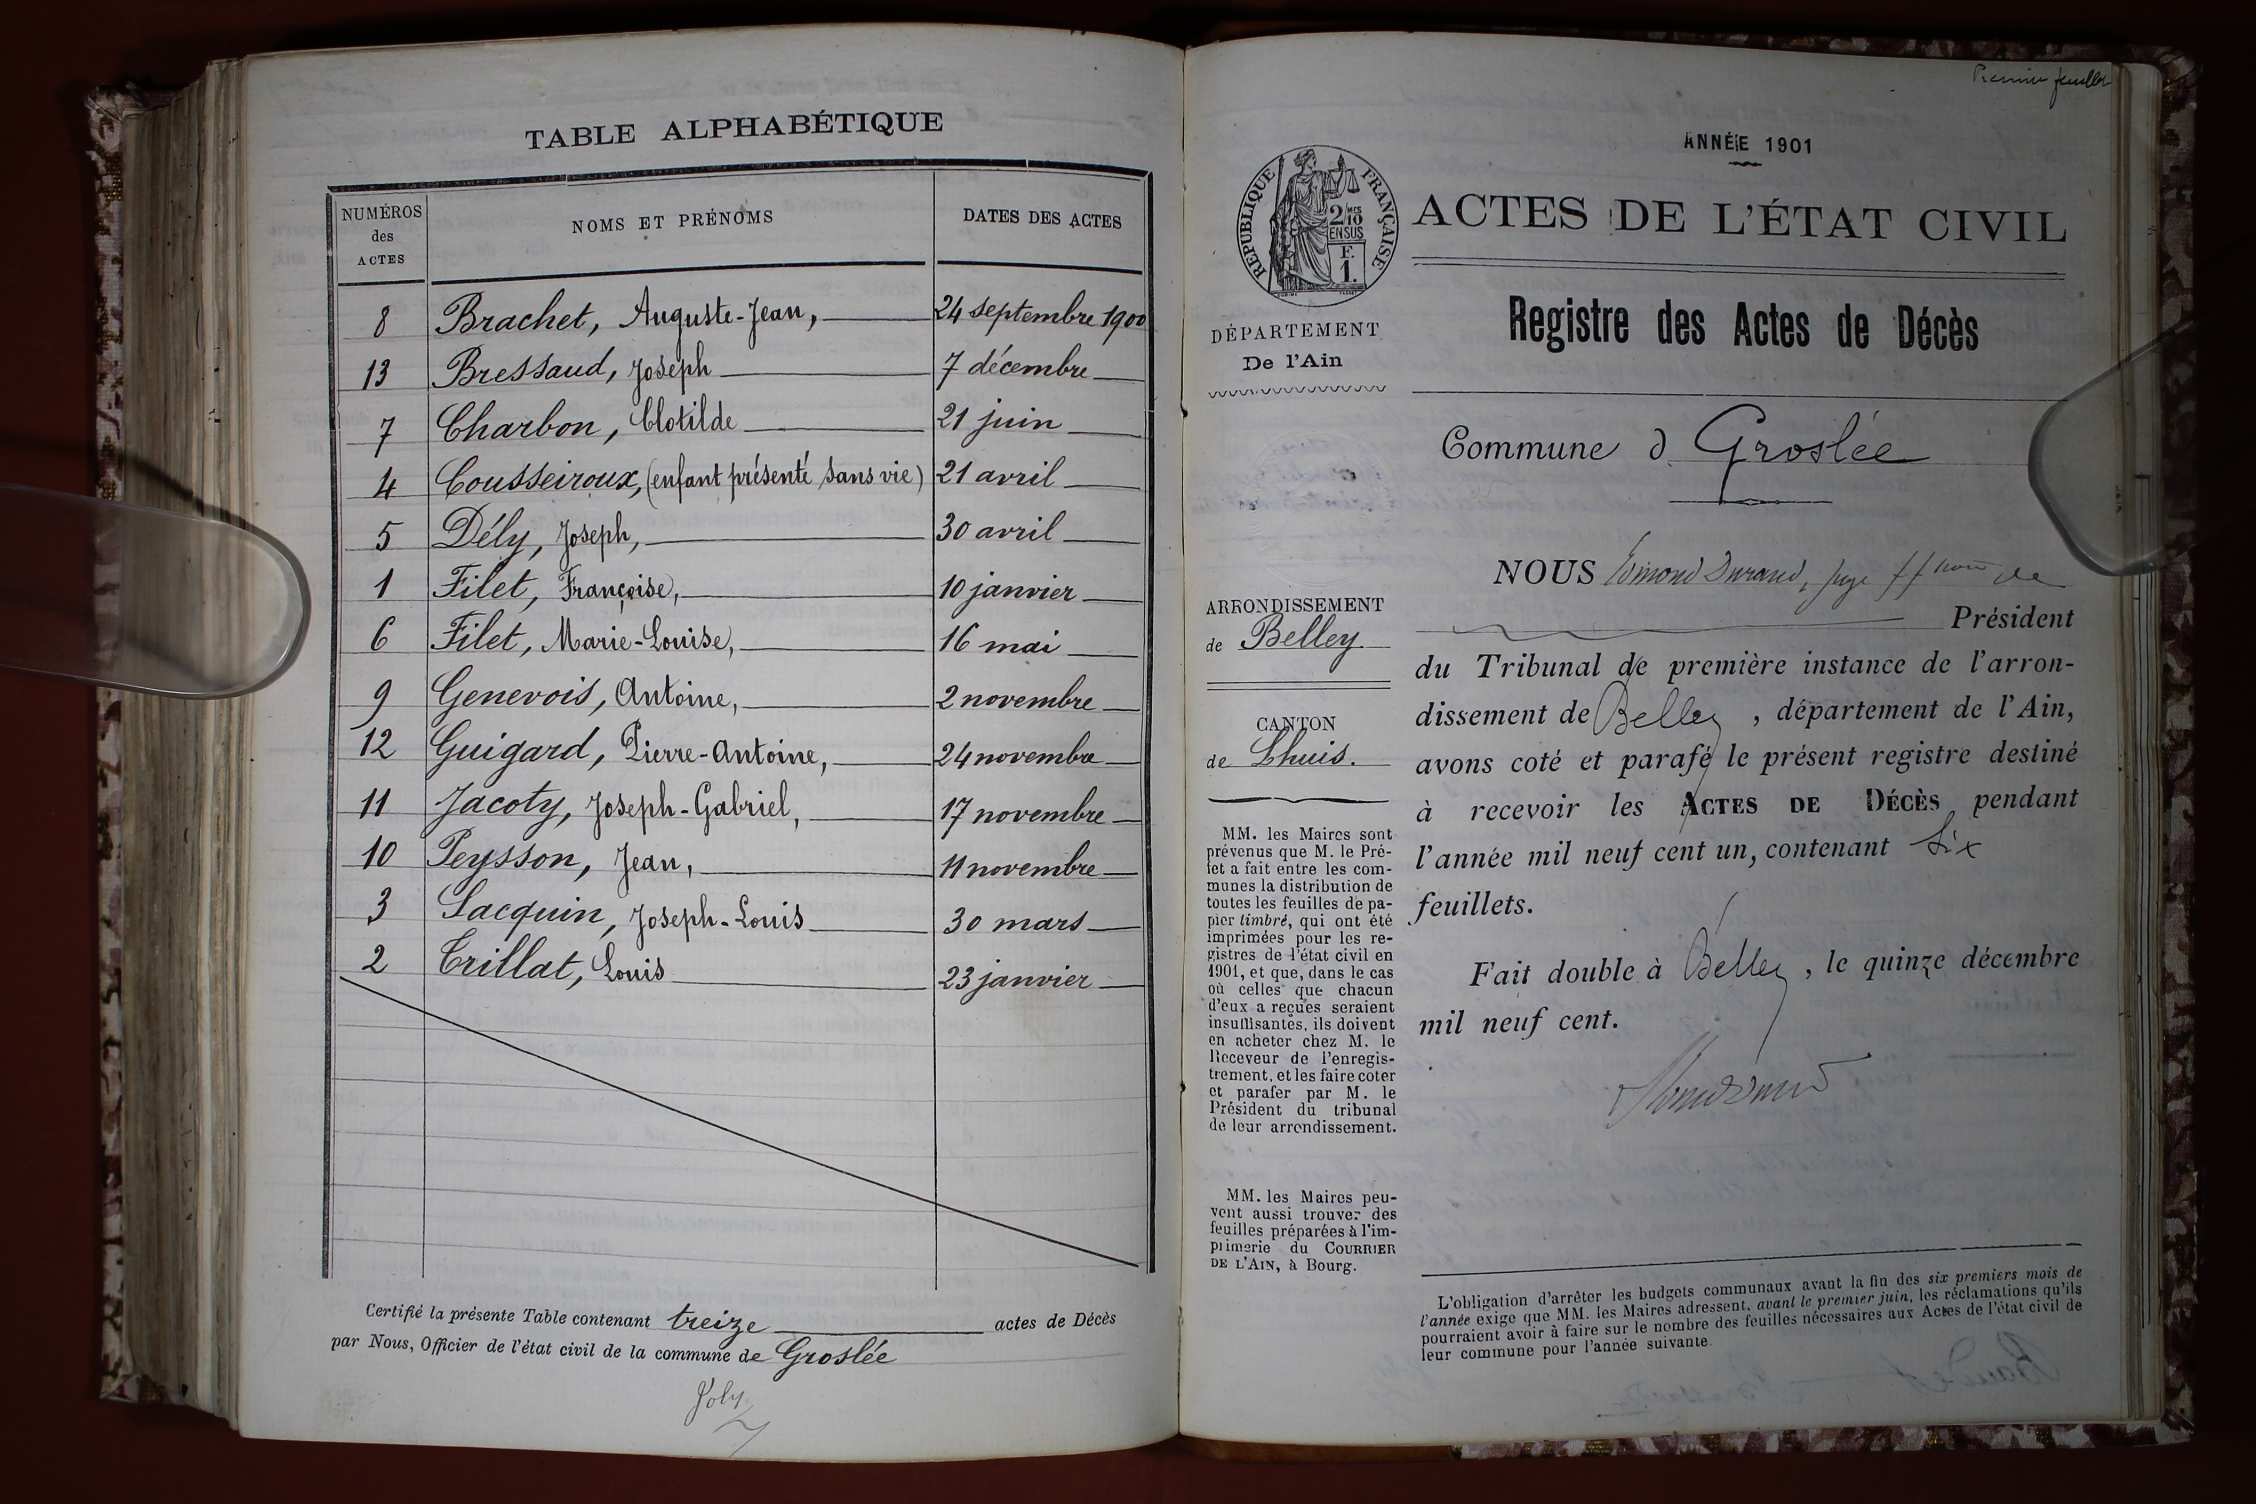 TABLE ALPHABÉTIQUE
NUMÉROS des ACTES NOMS ET PRÉNOMS DATES DES ACTES
8 Brachet, Auguste-Jean, 24 septembre 1900
13 Bressaud, Joseph 7 décembre
7 Charbon, Clotilde 21 juin
4 Cousseiroux, (enfant présenté sans vie) 21 avril
5 Dély, Joseph, 30 avril
1 Filet, Françoise, 10 janvier
6 Filet, Marie-Louise, 16 mai
9 Genevois, Antoine, 2 novembre
12 Guigard, Pierre-Antoine, 24 novembre
11 Jacoty, Joseph-Gabriel, 17 novembre
10 Peysson, Jean, 11 novembre
3 Sacquin, Joseph-Louis 30 mars
2 Trillat, Louis 23 janvier
Certifié la présente Table contenant treize actes de Décès
par Nous, Officier de l'état civil de la commune de Groslée
Joly
Premier feuillet
ANNÉE 1901
RÉPUBLIQUE FRANÇAISE
2/10 MES
EN SUS
F.
1.
ACTES DE L'ÉTAT CIVIL
Registre des Actes de Décès
DÉPARTEMENT
De l'Ain
Commune d Groslée
ARRONDISSEMENT
de Belley
CANTON
de Lhuis.
MM. les Maires sont
prévenus que M. le Pré-
fet a fait entre les com-
munes la distribution de
toutes les feuilles de pa-
pier timbré, qui ont été
imprimées pour les re-
gistres de l'état civil en
1901, et que, dans le cas
où celles que chacun
d'eux a reçues seraient
insuffisantes, ils doivent
en acheter chez M. le
Receveur de l'enregis-
trement, et les faire coter
et parafer par M. le
Président du tribunal
de leur arrondissement.
MM. les Maires peu-
vent aussi trouver des
feuilles préparées à l'im-
primerie du COURRIER
DE L'AIN, à Bourg.
NOUS Edmond Durand, Juge ff de
Président
du Tribunal de première instance de l'arron-
dissement de Belley, département de l'Ain,
avons coté et parafé le présent registre destiné
à recevoir les ACTES DE DÉCÈS pendant
l'année mil neuf cent un, contenant Six
feuillets.
Fait double à Belley, le quinze décembre
mil neuf cent.
L'obligation d'arrêter les budgets communaux avant la fin des six premiers mois de
l'année exige que MM. les Maires adressent, avant le premier juin, les réclamations qu'ils
pourraient avoir à faire sur le nombre des feuilles nécessaires aux Actes de l'état civil de
leur commune pour l'année suivante.